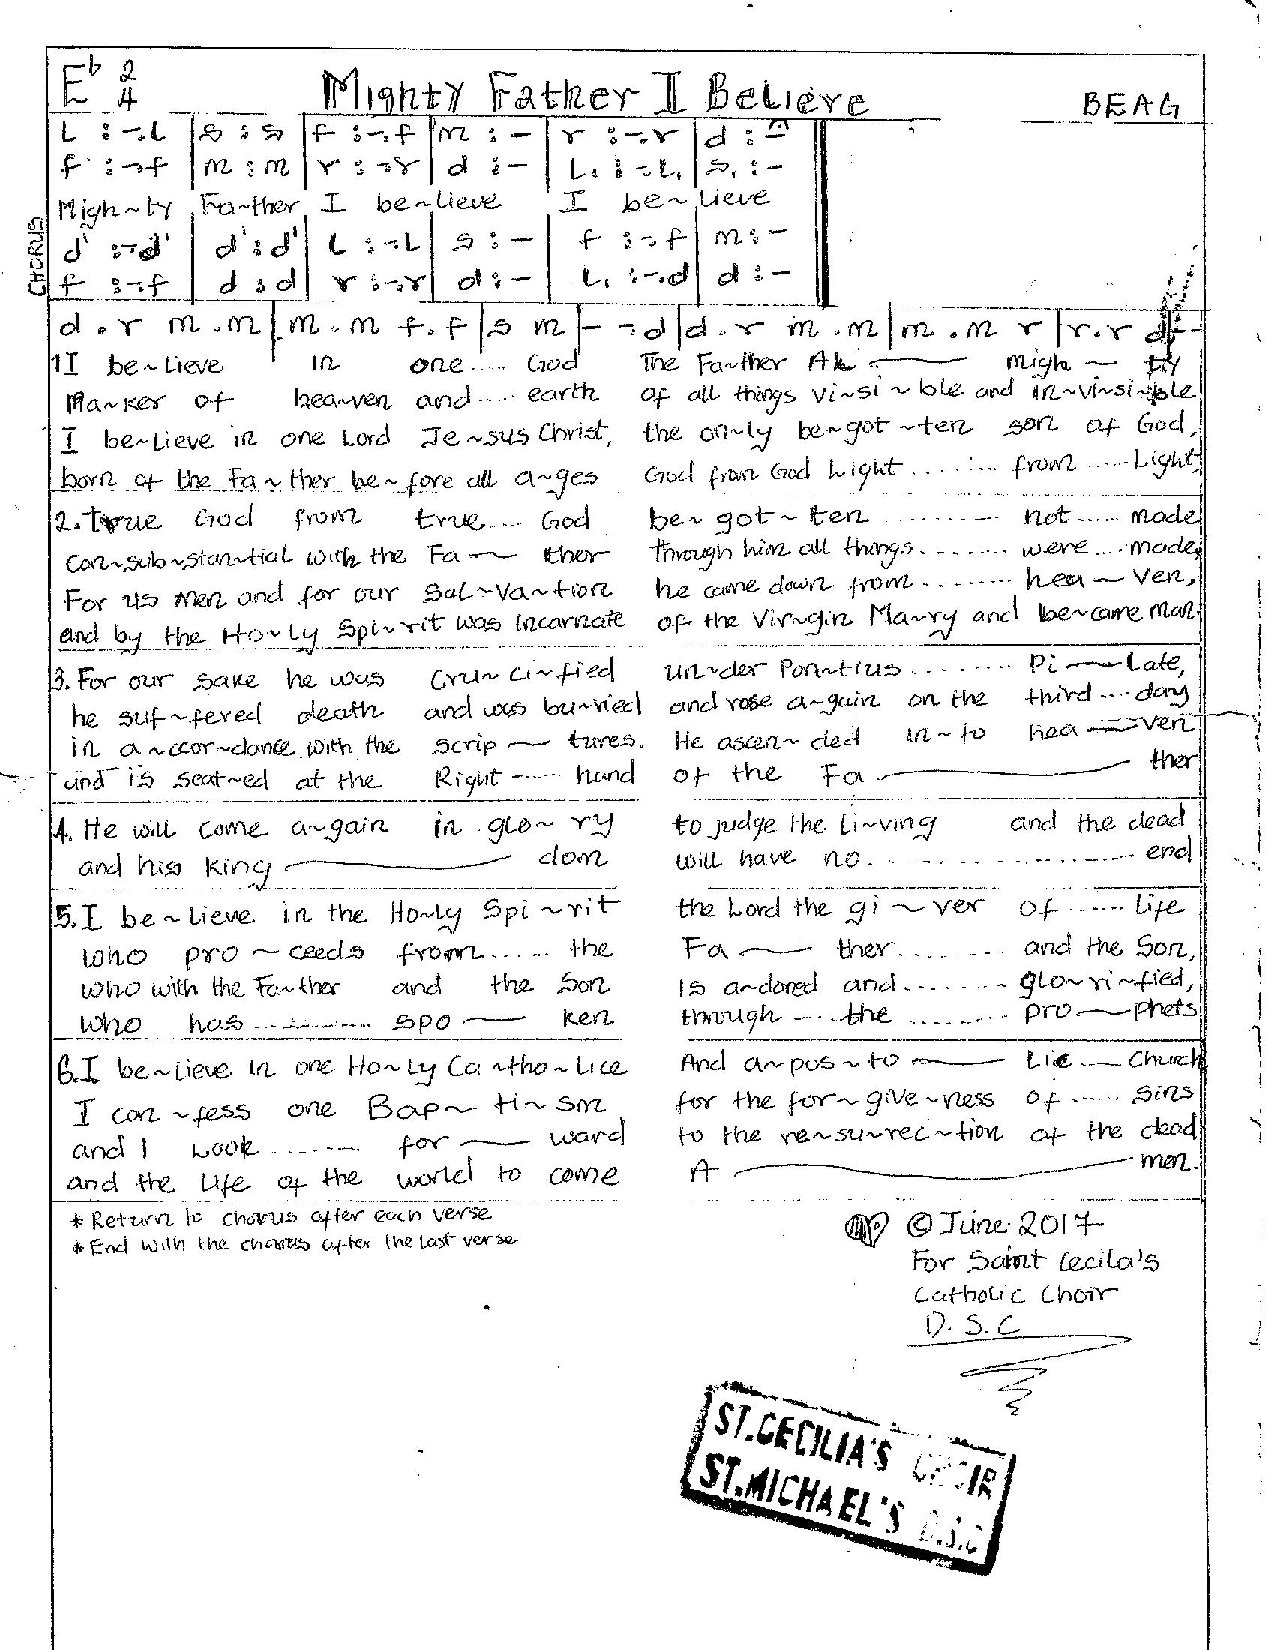 E♭ 2/4 Mighty Father I Believe BEAG
CHORUS
L :-.L | s : s | f :-.f | m : - | r :-.r | d : -
f :-.f | m : m | r :-.r | d : - | L, :-.L, | s, : -
Migh~ty Fa~ther I be~lieve I be~lieve
d' :-.d' | d' : d' | L :-.L | s : - | f :-.f | m : -
f :-.f | d : d | r :-.r | d : - | L, :-.d | d : -
d . r m . m | m . m f . f | s m | - -.d | d . r m . m | m . m r | r . r d -
1 I be~lieve in one.... God The Fa~ther Al —— migh ~ ty
Ma~ker of hea~ven and .... earth of all things vi~si~ble and in~vi~si~ble
I be~lieve in one Lord Je~sus Christ, the on~ly be~got~ten son of God,
born of the Fa~ther be~fore all a~ges God from God Light ........ from .... Light,
2. true God from true.... God be~got~ten .......... not .... made
con~sub~stan~tial with the Fa ~ ther through him all things........ were .... made,
For us men and for our Sal~va~tion he came down from ........ hea ~ ven,
and by the Ho~ly Spi~rit was incarnate of the Vir~gin Ma~ry and be~came man.
3. For our sake he was Cru~ci~fied un~der Pon~tius ........ Pi — late,
he suf~fered death and was bu~ried and rose a~gain on the third .... day
in a~ccor~dance with the scrip ~ tures. He ascen~ded in~to hea — ven
and is seat~ed at the Right ..... hand of the Fa ———— ther
4. He will come a~gain in glo~ry to judge the li~ving and the dead
and his king ———— dom will have no................... end
5. I be~lieve in the Ho~ly Spi~rit the Lord the gi~ver of ..... life
who pro~ceeds from...... the Fa —— ther........ and the Son,
who with the Fa~ther and the Son is a~dored and........ glo~ri~fied,
who has .......... spo —— ken through .... the ........ pro — phets
6. I be~lieve in one Ho~ly Ca~tho~lice And a~pos~to —— lic .... Church
I con~fess one Bap~ti~sm for the for~give~ness of ..... sins
and I look ........ for —— ward to the re~su~rec~tion of the dead
and the life of the world to come A ———— men.
* Return to chorus after each verse
* End with the chorus after the last verse
© June 2017
For Saint Cecila's
Catholic Choir
D.S.C
ST.CECILIA'S CHOIR
ST.MICHAEL'S D.S.C